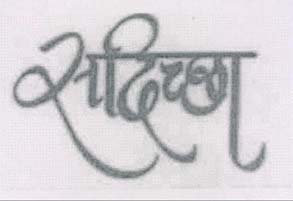 सदिच्छा